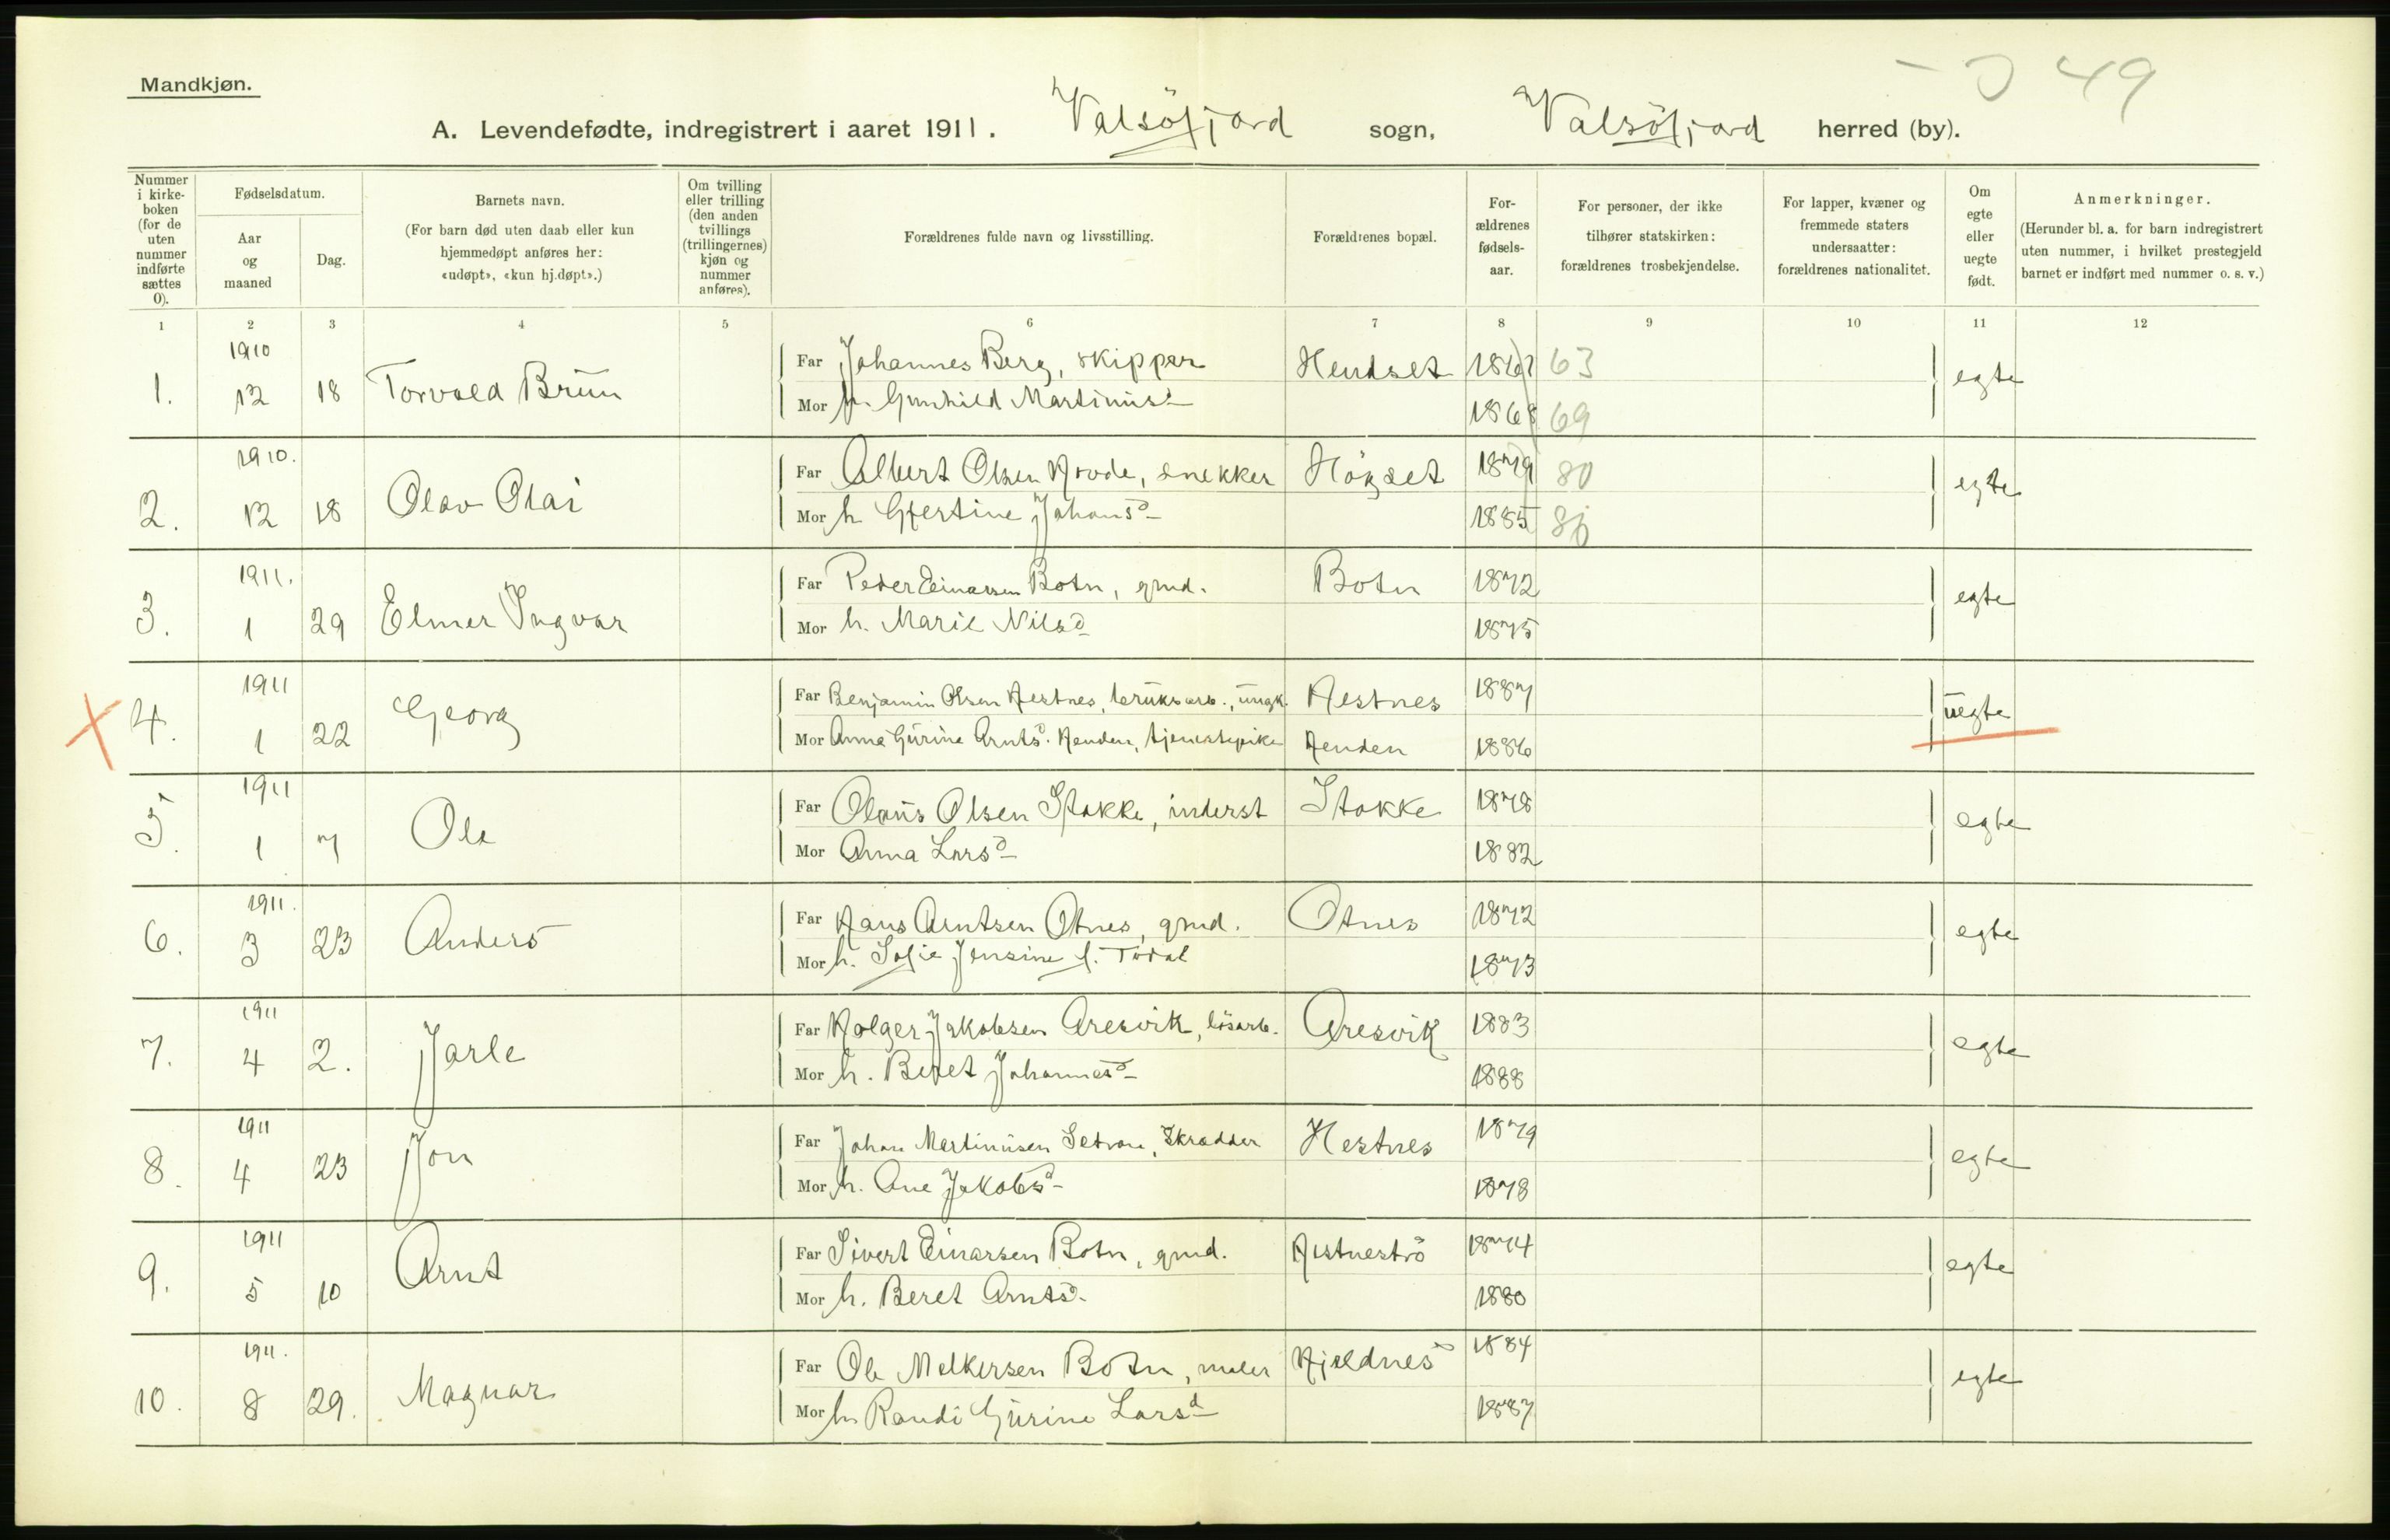 Mandkjøn.
49
A. Levendefødte, indregistrert i aaret 1911. Valsöfjord sogn, Valsöfjord herred (by).
Nummer i kirke-boken (for de uten nummer indførte sættes 0).
Fødselsdatum.
Aar og maaned
Dag.
Barnets navn.
(For barn død uten daab eller kun hjemmedøpt anføres her: «udøpt», «kun hj.døpt».)
Om tvilling eller trilling (den anden tvillings (trillingernes) kjøn og nummer anføres).
Forældrenes fulde navn og livsstilling.
Forældrenes bopæl.
For-ældrenes fødsels-aar.
For personer, der ikke tilhører statskirken: forældrenes trosbekjendelse.
For lapper, kvæner og fremmede staters undersaatter: forældrenes nationalitet.
Om egte eller uegte født.
Anmerkninger.
(Herunder bl. a. for barn indregistrert uten nummer, i hvilket prestegjeld barnet er indført med nummer o. s. v.)
1 2 3 4 5 6 7 8 9 10 11 12
1. 1910 12 18 Torvald Brun Far Johannes Berg, skipper Hendset 1867 63 egte
Mor h. Gunhild Martinusd 1868 69
2. 1910. 12 18 Olav Olai Far Albert Olsen Hovde, snekker Högset 1879 80 egte
Mor h Gjertine Johansd 1885
3. 1911. 1 29 Elmer Ingvar Far Peder Einarsen Botn, grnd. Botn 1872 egte
Mor h. Marie Nilsd 1875
4. 1911 1 22 Georg Far Benjamin Olsen Hestnes, bruksarb., ungk. Hestnes 1887 uegte
Mor Anna Gurine Arntsd. Henden, tjenestepike Henden 1886
5. 1911 1 7 Ola Far Olaus Olsen Stokke, inderst Stokke 1878 egte
Mor Anna Larsd 1882
6. 1911. 3 23 Anders Far Hans Arntsen Otnes, grnd. Otnes 1872 egte
Mor h. Sofie Jensine f. Todal 1873
7. 1911 4 2. Jarle Far Holger Jakobsen Aresvik, lösarb. Aresvik 1883 egte
Mor h. Beret Johannesd 1888
8. 1911 4 23 Jon Far Johan Martinusen Setran, Skrædder Hestnes 1879 egte
Mor h. Ane Jakobsd 1878
9. 1911 5 10 Arnt Far Sivert Einarsen Botn, grnd. Hestneströ 1874 egte
Mor h. Beret Arntsd. 1880
10. 1911. 8 29. Magnar Far Ole Melkersen Botn, maler Kjeldnes 1884 egte
Mor h Randi Gurine Larsd 1887